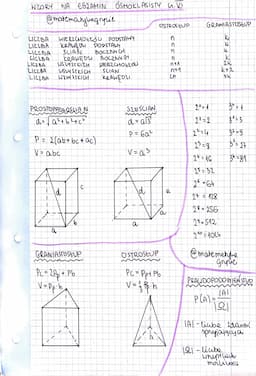 WZORY NA EGZAMIN ÓSMOKLASISTY cz.
@matematycznygryfie
OSTROSŁUP GRANIASTOSŁUP
LICZBA WIERZCHOŁKÓW PODSTAWY n k
LICZBA KRAWĘDZI PODSTAWY n k
LICZBA ŚCIAN BOCZNYCH n k
LICZBA KRAWĘDZI BOCZNYCH n k
LICZBA WSZYSTKICH WIERZCHOŁKÓW n+1 2k
LICZBA WSZYSTKICH ŚCIAN n+1 k+2
LICZBA WSZYSTKICH KRAWĘDZI 2n 3k
PROSTOPADŁOŚCIAN
d=√a²+b²+c²
P=2(ab+bc+ac)
V=abc
d
c
b
a
SZEŚCIAN
d=a√3
P=6a²
V=a³
d
a
a
a
2⁰=1 3⁰=1
2¹=2 3¹=3
2²=4 3²=9
2³=8 3³=27
2⁴=16 3⁴=81
2⁵=32
2⁶=64
2⁷=128
2⁸=256
2⁹=512
2¹⁰=1024
GRANIASTOSŁUP
Pc=2Pp+Pb
V=Pp·h
OSTROSŁUP
Pc=Pp+Pb
V=⅓Pp·h
h
PRAWDOPODOBIEŃSTWO
P(A)=|A|/|Ω|
|A| - liczba zdarzeń sprzyjających
|Ω| - liczba wszystkich